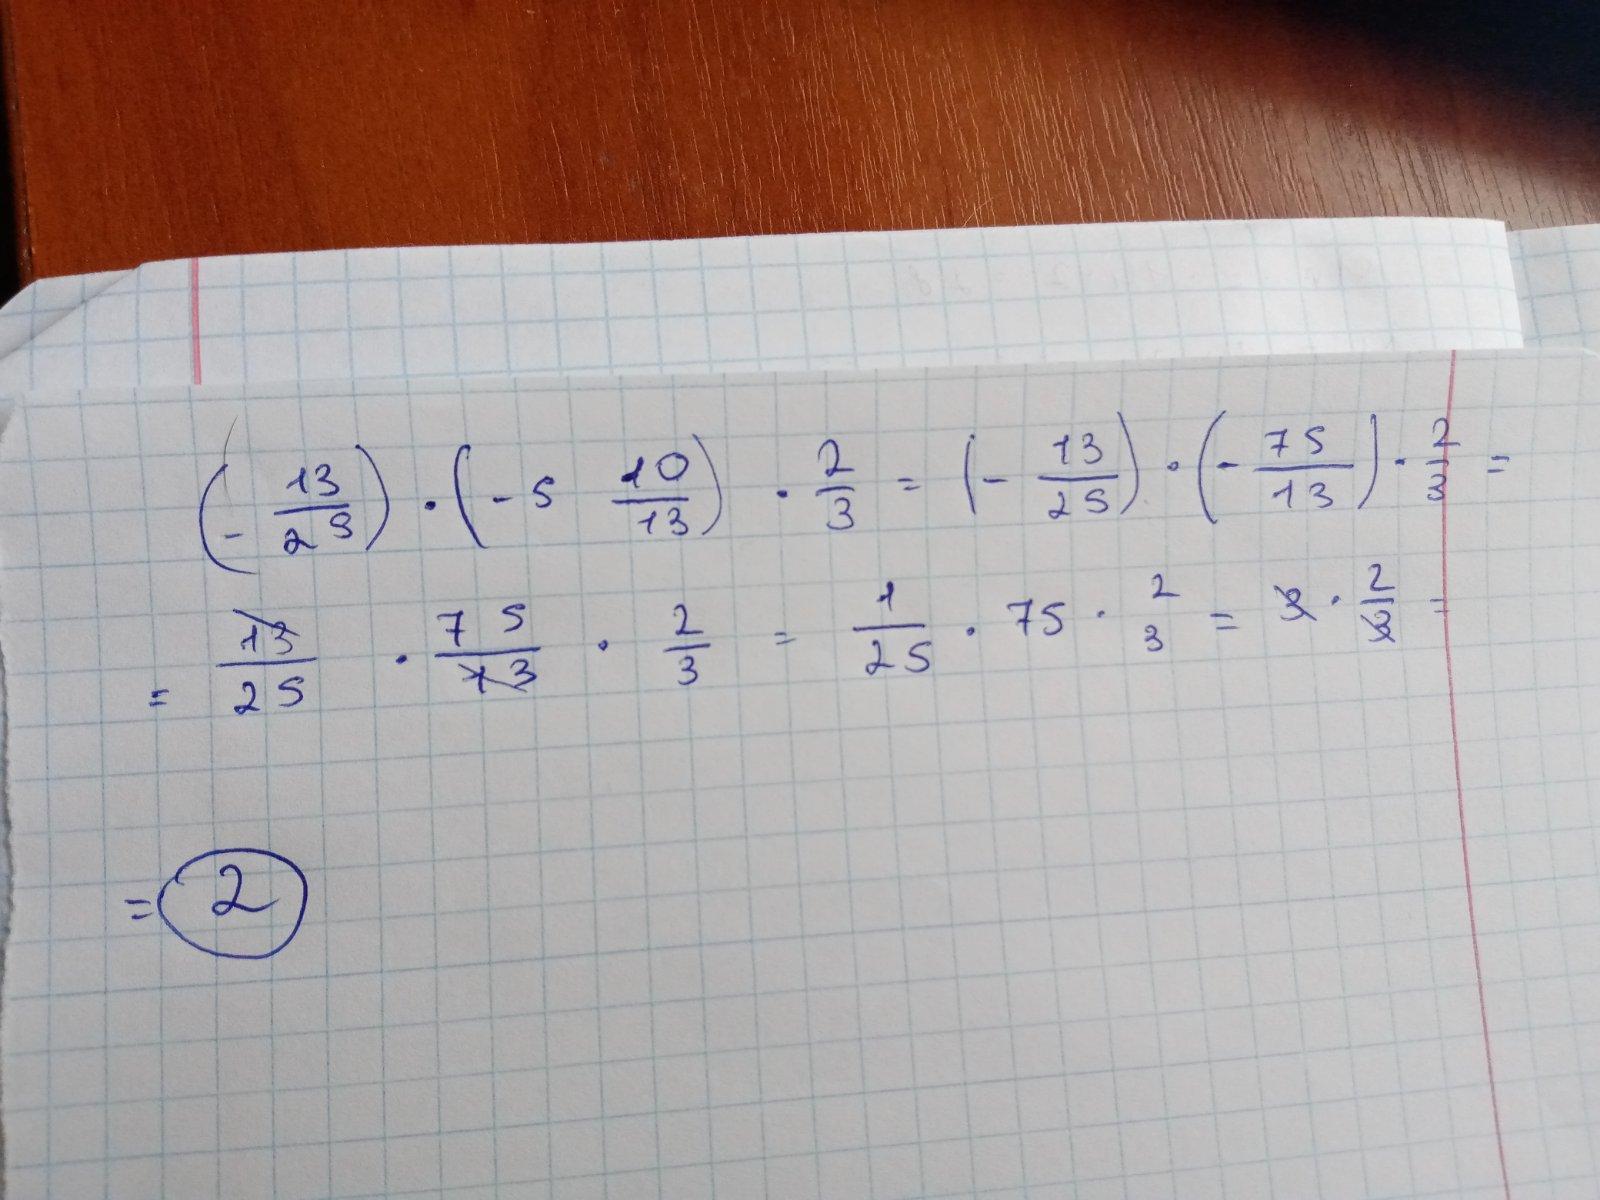 (- 13/25) · (-5 10/13) · 2/3 = (- 13/25) · (- 75/13) · 2/3 =
= 13/25 · 75/13 · 2/3 = 1/25 · 75 · 2/3 = 3 · 2/3 =
= 2